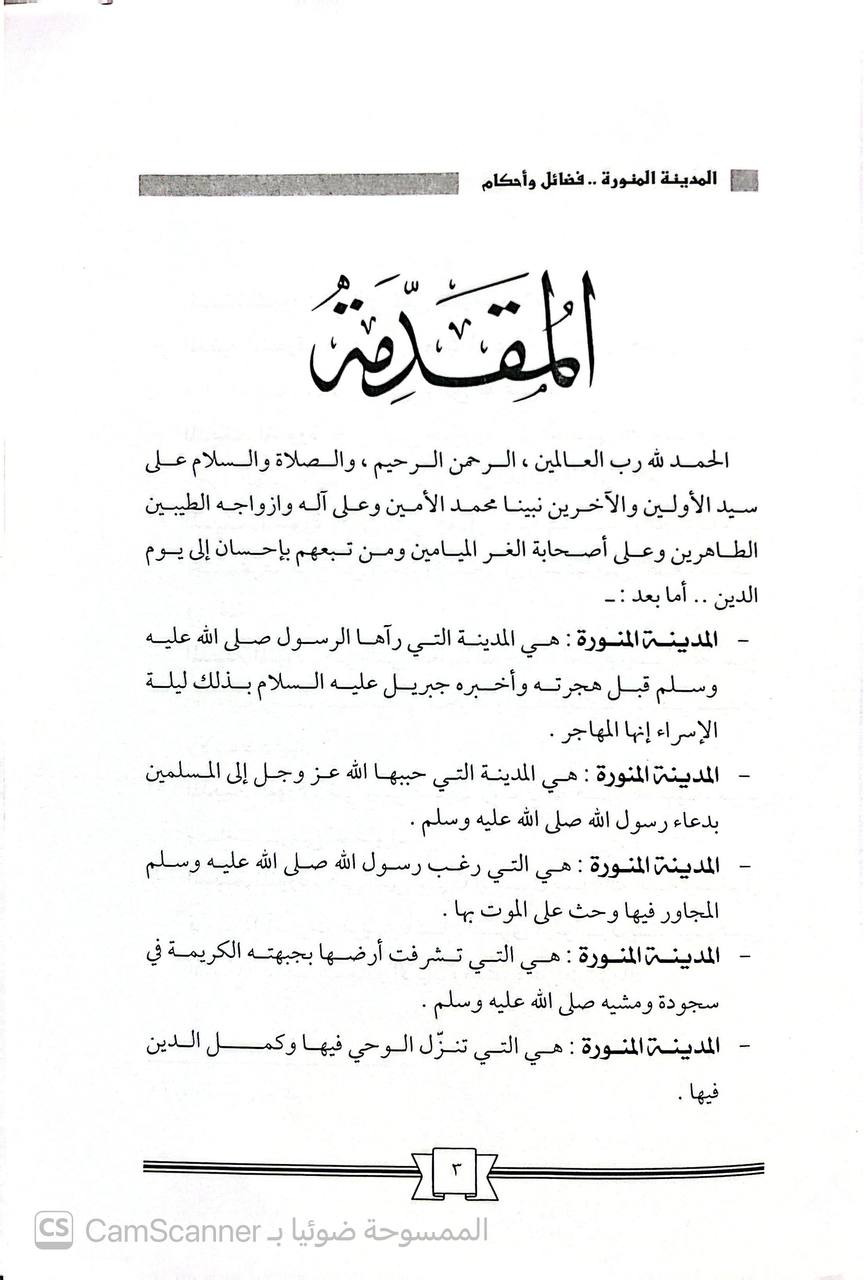 المدينة المنورة .. فضائل وأحكام
المُقَدِّمَةُ
الحمد لله رب العالمين ، الرحمن الرحيم ، والصلاة والسلام على
سيد الأولين والآخرين نبينا محمد الأمين وعلى آله وازواجه الطيبين
الطاهرين وعلى أصحابة الغر الميامين ومن تبعهم بإحسان إلى يوم
الدين .. أما بعد : ـ
- المدينة المنورة : هي المدينة التي رآها الرسول صلى الله عليه
وسلم قبل هجرته وأخبره جبريل عليه السلام بذلك ليلة
الإسراء إنها المهاجر .
- المدينة المنورة : هي المدينة التي حببها الله عز وجل إلى المسلمين
بدعاء رسول الله صلى الله عليه وسلم .
- المدينة المنورة : هي التي رغب رسول الله صلى الله عليه وسلم
المجاور فيها وحث على الموت بها .
- المدينة المنورة : هي التي تشرفت أرضها بجبهته الكريمة في
سجودة ومشيه صلى الله عليه وسلم .
- المدينة المنورة : هي التي تنزّل الوحي فيها وكمل الدين
فيها .
٣
CS الممسوحة ضوئيا بـ CamScanner